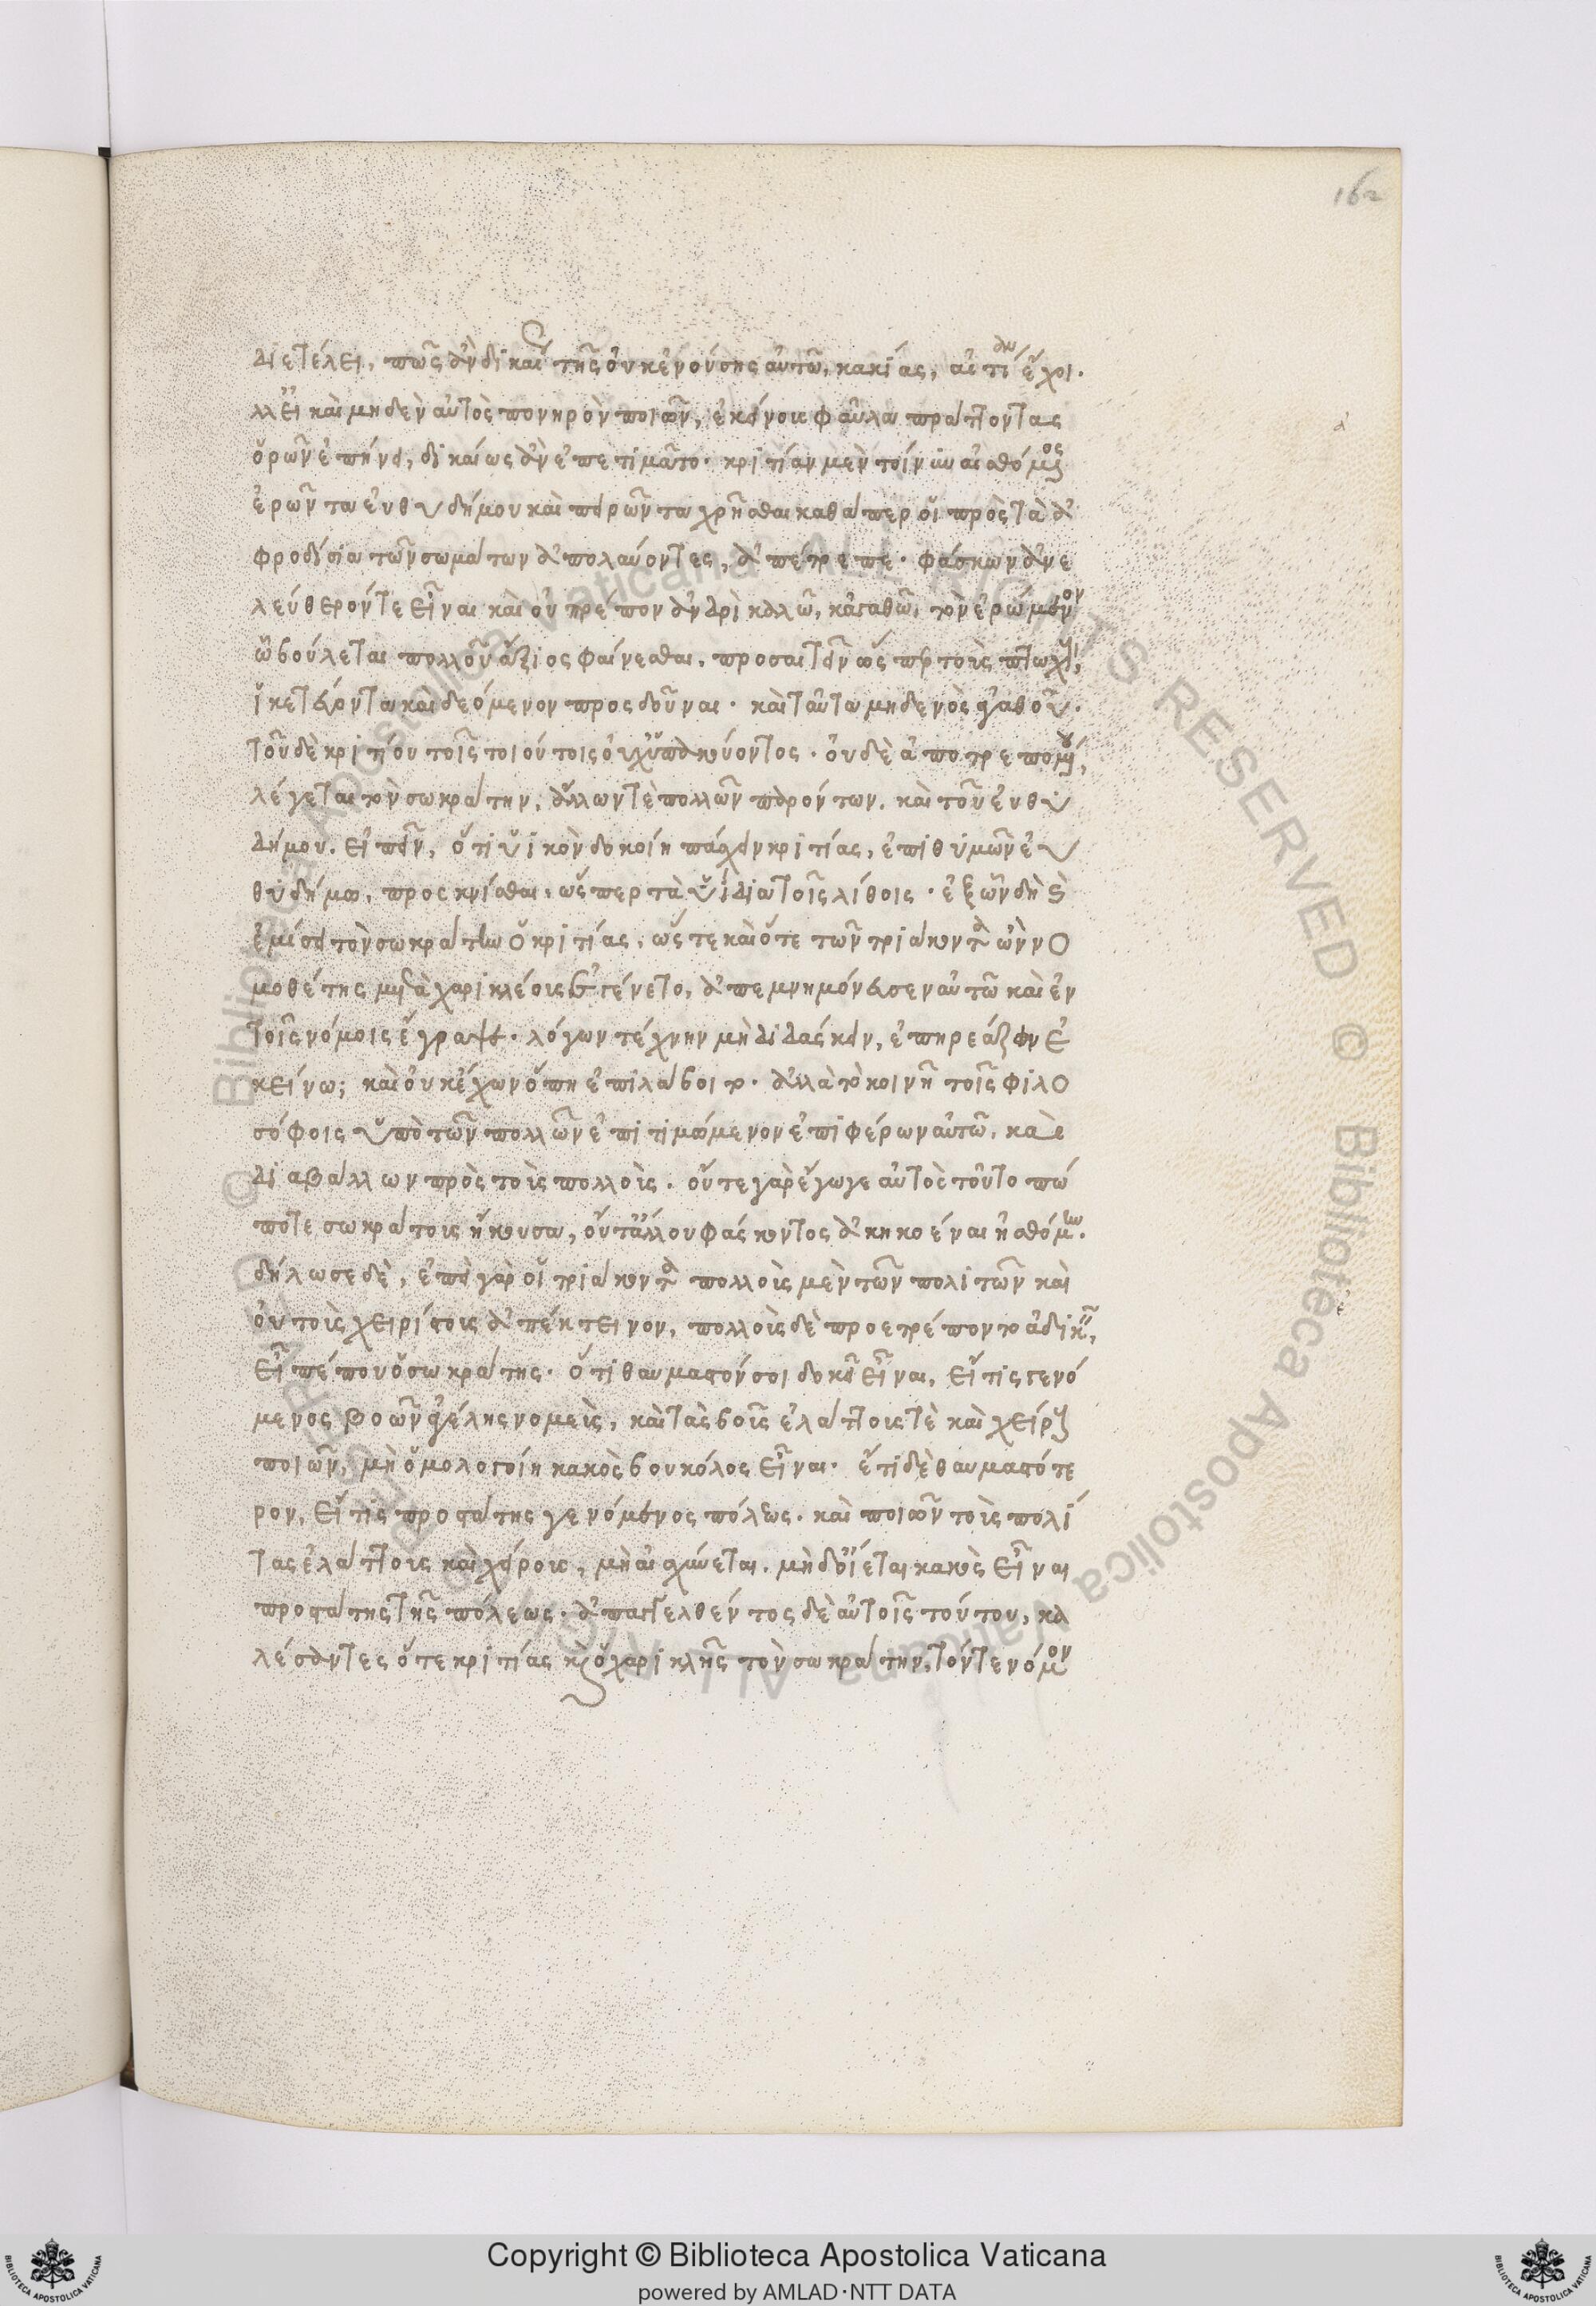 162
διετέλει, πῶς ἂν δικαί τῆς οὐκ ἐνούσης αὐτῶ, κακίας, αἰτίαν ἔχοι.
ἀλλ' εἰ καὶ μηδὲν αὐτὸς πονηρὸν ποιῶν, ἐκείνους φαῦλα πράττοντας
ὁρῶν ἐπήνει, δικαίως ἂν ἐπετιμᾶτο. κριτίαν μὲν τοίνυν αἰσθόμενος
ἐρῶντα εὐθυδήμου καὶ πειρῶντα χρῆσθαι καθάπερ οἱ πρὸς τὰ ἀ
φροδίσια τῶν σωμάτων ἀπολαύοντες, ἀπέτρεπε. φάσκων ἀνε
λεύθερόν τε εἶναι καὶ οὐ πρέπον ἀνδρὶ καλῶ, κἀγαθῶ, τὸν ἐρώμενον
ὧ βούλεται πολλοῦ ἄξιος φαίνεσθαι, προσαιτεῖν ὥσπερ τοὺς πτωχοὺς,
ἱκετεύοντα καὶ δεόμενον προσδοῦναι. καὶ ταῦτα μηδενὸς ἀγαθοῦ.
τοῦ δὲ κριτίου τοῖς τοιούτοις οὐχ ὑπακούοντος. οὐδὲ ἀποτρεπομένου,
λέγεται τὸν σωκράτην, ἄλλων τὲ πολλῶν παρόντων. καὶ τοῦ εὐθυ
δήμου. εἰπεῖν, ὅτι ὑικὸν δοκοίη πάσχειν κριτίας, ἐπιθυμῶν εὐ
θυδήμω, προσκνῖσθαι, ὥσπερ τὰ ὑΐδια τοῖς λίθοις. ἐξ ὧν δὴ καὶ
ἐμίσει τὸν σωκράτην ὁ κριτίας, ὥστε καὶ ὅτε τῶν τριάκοντα ὢν νο
μοθέτης μετὰ χαρικλέους ἐγένετο, ἀπεμνημόνευσεν αὐτῶ καὶ ἐν
τοῖς νόμοις ἔγραψε. λόγων τέχνην μὴ διδάσκειν, ἐπηρεάζων ἐ
κείνω; καὶ οὐκ ἔχων ὅπη ἐπιλάβοιτο. ἀλλὰ τὸ κοινῆ τοῖς φιλο
σόφοις ὑπὸ τῶν πολλῶν ἐπιτιμώμενον ἐπιφέρων αὐτῶ, καὶ
διαβάλλων πρὸς τοὺς πολλούς. οὔτε γὰρ ἔγωγε αὐτὸς τοῦτο πώ
ποτε σωκράτους ἤκουσα, οὔτ' ἄλλου φάσκοντος ἀκηκοέναι ἠσθόμην.
δήλωσε δὲ, ἐπεὶ γὰρ οἱ τριάκοντα πολλοὺς μὲν τῶν πολιτῶν καὶ
οὐ τοὺς χειρίστους ἀπέκτεινον, πολλοὺς δὲ προετρέποντο ἀδικεῖν,
εἶπέ που ὁ σωκράτης. ὅτι θαυμαστόν σοι δοκεῖ εἶναι, εἴ τις γενό
μενος βοῶν ἀγέλης νομεὺς, καὶ τὰς βοῦς ἐλάττους τὲ καὶ χείρους
ποιῶν, μὴ ὁμολογοίη κακὸς βουκόλος εἶναι. ἔτι δὲ θαυμαστότε
ρον, εἴ τις προστάτης γενόμενος πόλεως. καὶ ποιῶν τοὺς πολί
τας ἐλάττους καὶ χείρους, μὴ αἰσχύνεται. μηδ' οἴεται κακὸς εἶναι
προστάτης τῆς πόλεως. ἀπαγγελθέντος δὲ αὐτοῖς τούτου, κα
λέσαντες ὅ τε κριτίας καὶ ὁ χαρικλῆς τὸν σωκράτην, τόν τε νόμον
Copyright © Biblioteca Apostolica Vaticana
powered by AMLAD·NTT DATA